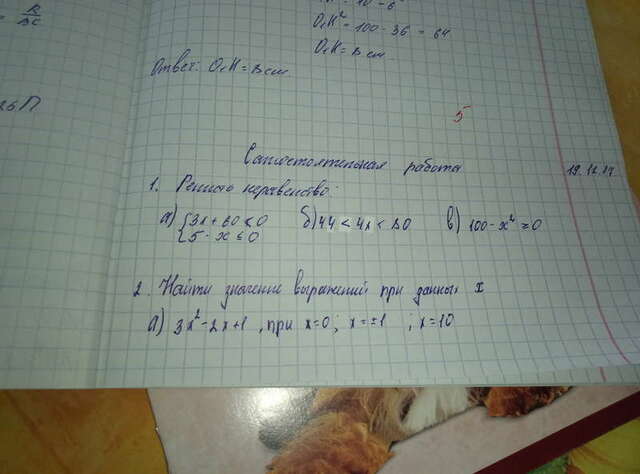 = R/BC
O₁K² = 100 - 36 = 64
O₁K = 8 см
Ответ: O₁K = 8 см
5
Самостоятельная работа
19.12.17
1. Решить неравенство:
а) {3x + 60 < 0 б) 44 < 4x < 80 в) 100 - x² ≥ 0
{5 - x ≤ 0
2. Найти значение выражений при данных x
а) 3x² - 2x + 1 , при x = 0 ; x = ±1 ; x = 10